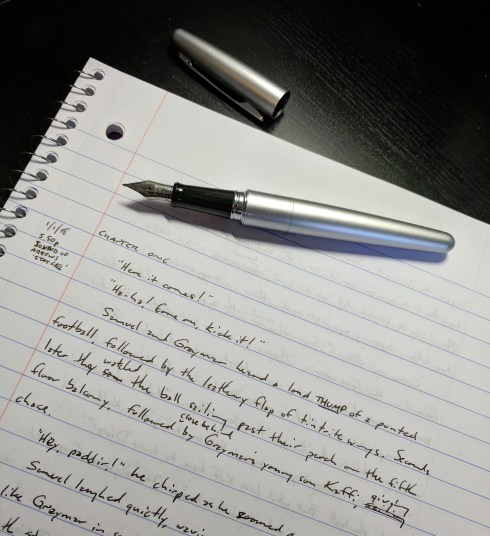 1/1/18
5:50p
SOUND OF
ARROWS
CHAPTER ONE
"Here it comes!"
"Ha-ha! Come on, kick it!"
Samuel and Graymar heard a loud THUMP of a punted
football, followed by the leathery flap of wings. Seconds
later they watched the ball sailing past their perch on the fifth
floor balcony, followed close behind by Graymar's young son Koffi, giving
chase.
"Hey, paddir!" he chirped as he zoomed
Samuel laughed quietly,
like Graymar in